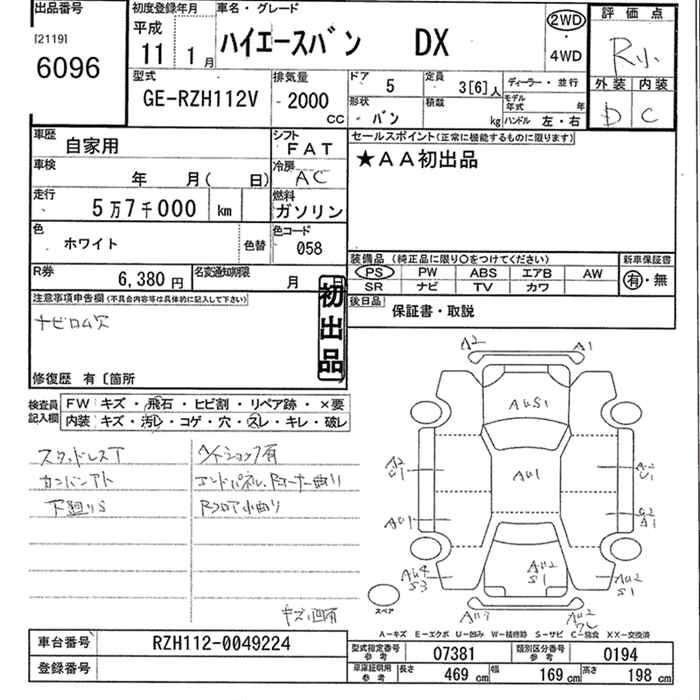 出品番号
[2119]
6096
初度登録年月
平成
11 1月
車名・グレード
ハイエースバン DX
2WD
・
4WD
評価点
R小
外装 内装
D C
型式
GE-RZH112V
排気量
2000
CC
ドア 5
定員 3[6]人
ディーラー・並行
形状 バン
積載 kg
モデル年式 年
ハンドル 左・右
車歴 自家用
シフト FAT
セールスポイント(正常に機能するものに限ります)
★AA初出品
車検 年 月( 日)
冷房 AC
走行 5万7千000 km
燃料 ガソリン
色 ホワイト 色替
色コード 058
装備品 (純正品に限り○をつけてください)
新車保証書
PS PW ABS エアB AW
SR ナビ TV カワ
有・無
R券 6,380円
名変通知期限 月
後日品
保証書・取説
注意事項申告欄(不具合内容等は具体的に記入して下さい)
ナビロム欠
初出品
修復歴 有〔箇所
検査員記入欄
FW キズ・飛石・ヒビ割・リペア跡・×要
内装 キズ・汚レ・コゲ・穴・スレ・キレ・破レ
スタッドレスT
カンバンアト
下廻りS
エンドパネル、Rコーナー曲り
Rフロア小曲り
A2 A1
AUS1
AU1
A2
U1
AU1
U2
A1
AU4
S3
AU2
S1
AU2
S1
スペア
A-キズ E-エクボ U-凹み W-補修跡 S-サビ C-腐食 XX-交換済
車台番号 RZH112-0049224
登録番号
型式指定番号 参考 07381
類別区分番号 参考 0194
車庫証明用 参考 長さ 469 cm 幅 169 cm 高さ 198 cm